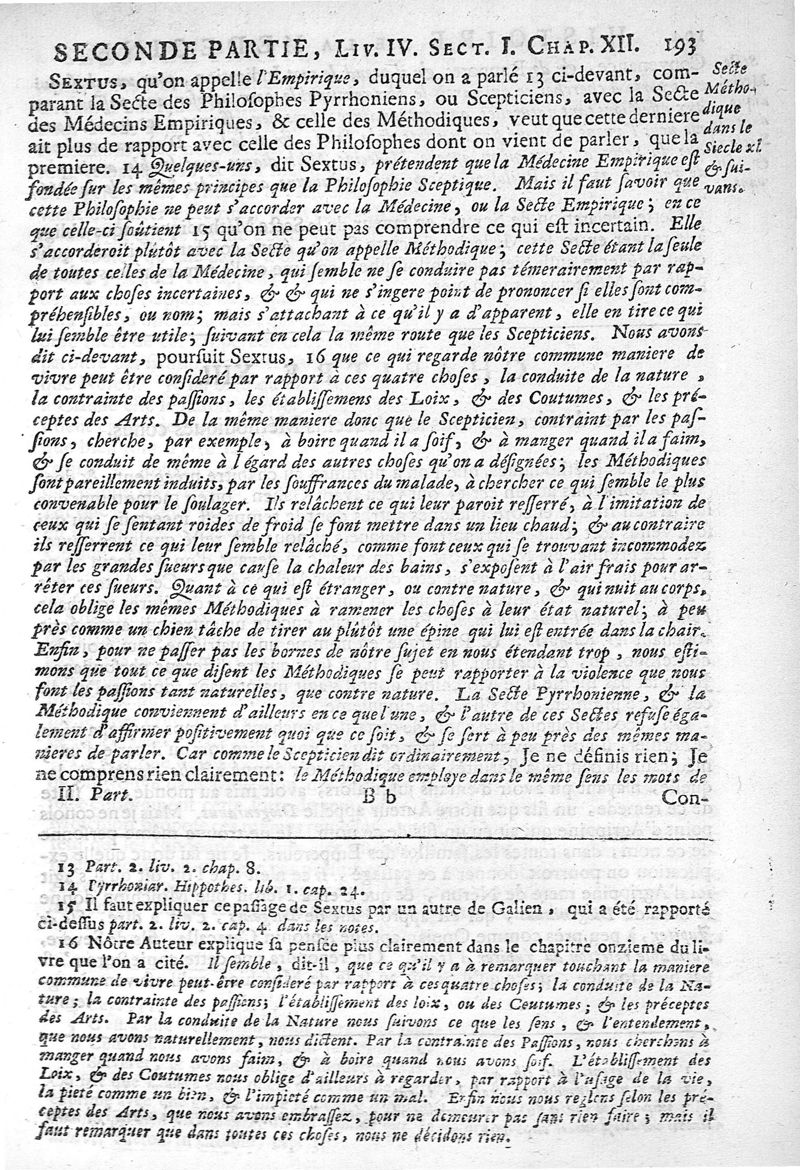 SECONDE PARTIE, LIV. IV. SECT. I. CHAP. XII. 193
SEXTUS, qu'on appelle l'Empirique, duquel on a parlé 13 ci-devant, com-
parant la Secte des Philosophes Pyrrhoniens, ou Scepticiens, avec la Secte
des Médecins Empiriques, & celle des Méthodiques, veut que cette derniere
ait plus de rapport avec celle des Philosophes dont on vient de parler, que la
premiere. 14 Quelques-uns, dit Sextus, prétendent que la Médecine Empirique est
fondée sur les mêmes principes que la Philosophie Sceptique. Mais il faut savoir que
cette Philosophie ne peut s'accorder avec la Médecine, ou la Secte Empirique; en ce
que celle-ci soûtient 15 qu'on ne peut pas comprendre ce qui est incertain. Elle
s'accorderoit plûtôt avec la Secte qu'on appelle Méthodique; cette Secte étant la seule
de toutes celles de la Médecine, qui semble ne se conduire pas témerairement par rap-
port aux choses incertaines, & & qui ne s'ingere point de prononcer si elles sont com-
préhensibles, ou nom; mais s'attachant à ce qu'il y a d'apparent, elle en tire ce qui
lui semble être utile; suivant en cela la même route que les Scepticiens. Nous avons
dit ci-devant, poursuit Sextus, 16 que ce qui regarde nôtre commune maniere de
vivre peut être consideré par rapport à ces quatre choses, la conduite de la nature,
la contrainte des passions, les établissemens des Loix, & des Coutumes, & les pré-
ceptes des Arts. De la même maniere donc que le Scepticien, contraint par les pas-
sions, cherche, par exemple, à boire quand il a soif, & à manger quand il a faim,
& se conduit de même à l'égard des autres choses qu'on a désignées; les Méthodiques
sont pareillement induits, par les souffrances du malade, à chercher ce qui semble le plus
convenable pour le soulager. Ils relâchent ce qui leur paroit resserré, à l'imitation de
ceux qui se sentant roides de froid se font mettre dans un lieu chaud; & au contraire
ils resserrent ce qui leur semble relâché, comme font ceux qui se trouvant incommodez
par les grandes sueurs que cause la chaleur des bains, s'exposent à l'air frais pour ar-
rêter ces sueurs. Quant à ce qui est étranger, ou contre nature, & qui nuit au corps,
cela oblige les mêmes Méthodiques à ramener les choses à leur état naturel; à peu
près comme un chien tâche de tirer au plûtôt une épine qui lui est entrée dans la chair.
Enfin, pour ne passer pas les bornes de nôtre sujet en nous étendant trop, nous esti-
mons que tout ce que disent les Méthodiques se peut rapporter à la violence que nous
font les passions tant naturelles, que contre nature. La Secte Pyrrhonienne, & la
Méthodique conviennent d'ailleurs en ce que l'une, & l'autre de ces Sectes refuse éga-
lement d'affirmer positivement quoi que ce soit, & se sert à peu près des mêmes ma-
nieres de parler. Car comme le Scepticien dit ordinairement, Je ne définis rien; Je
ne comprens rien clairement: le Méthodique employe dans le même sens les mots de
II. Part. B b Con-
Secte
Métho-
dique
dans le
Siecle xl.
& sui-
vans.
13 Part. 2. liv. 2. chap. 8.
14 Pyrrhoniar. Hippothes. lib. 1. cap. 24.
15 Il faut expliquer ce passage de Sextus par un autre de Galien, qui a été rapporté
ci-dessus part. 2. liv. 2. cap. 4. dans les notes.
16 Nôtre Auteur explique sa pensée plus clairement dans le chapitre onzieme du li-
vre que l'on a cité. Il semble, dit-il, que ce qu'il y a à remarquer touchant la maniere
commune de vivre peut-être consideré par rapport à ces quatre choses; la conduite de la Na-
ture; la contrainte des passions; l'établissement des loix, ou des Coutumes; & les préceptes
des Arts. Par la conduite de la Nature nous suivons ce que les sens, & l'entendement,
que nous avons naturellement, nous dictent. Par la contrainte des Passions, nous cherchons à
manger quand nous avons faim, & à boire quand nous avons soif. L'établissement des
Loix, & des Coutumes nous oblige d'ailleurs à regarder, par rapport à l'usage de la vie,
la pieté comme un bien, & l'impieté comme un mal. Enfin nous nous reglons selon les pré-
ceptes des Arts, que nous avons embrassez, pour ne demeurer pas sans rien faire; mais il
faut remarquer que dans toutes ces choses, nous ne décidons rien.